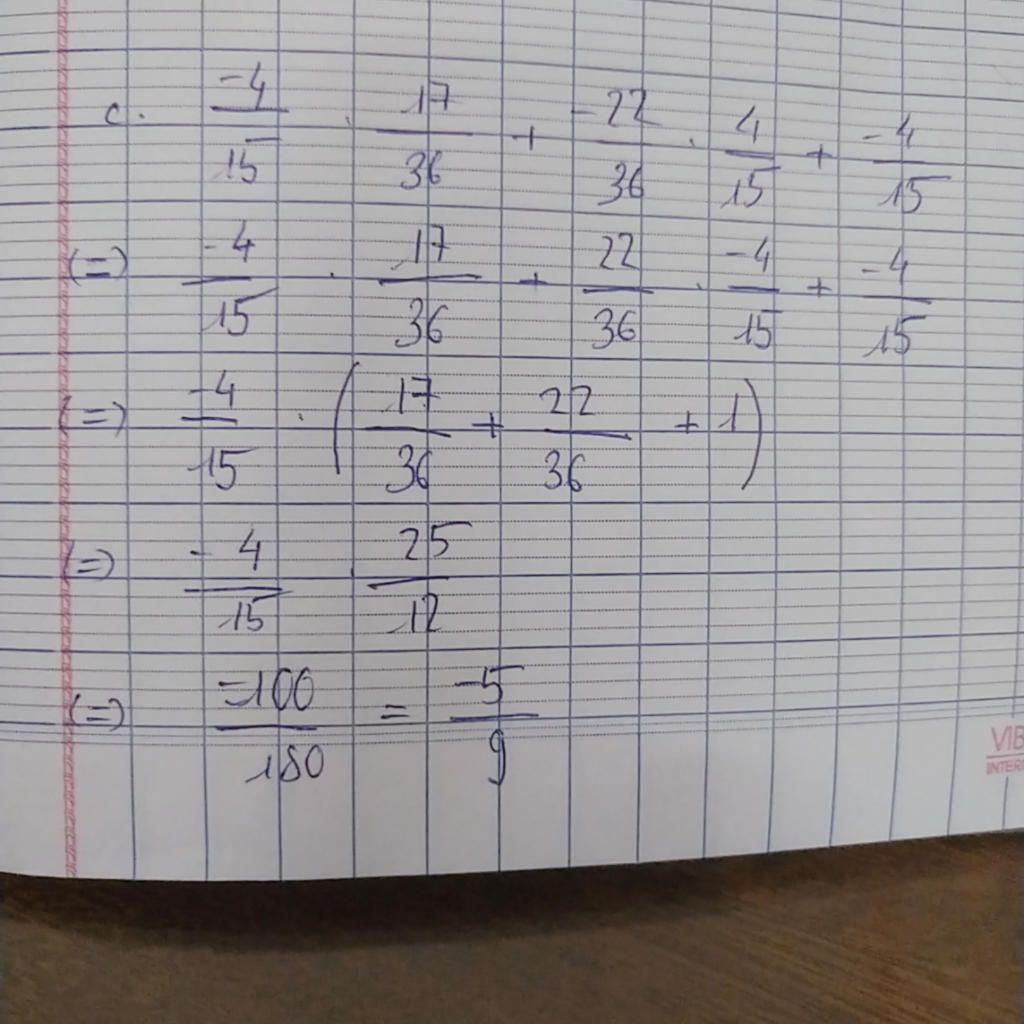 c. -4/15 . 17/36 + -22/36 . 4/15 + -4/15
(=) -4/15 . 17/36 + 22/36 . -4/15 + -4/15
(=) -4/15 . (17/36 + 22/36 + 1)
(=) -4/15 . 25/12
(=) -100/180 = -5/9
VIB
INTER